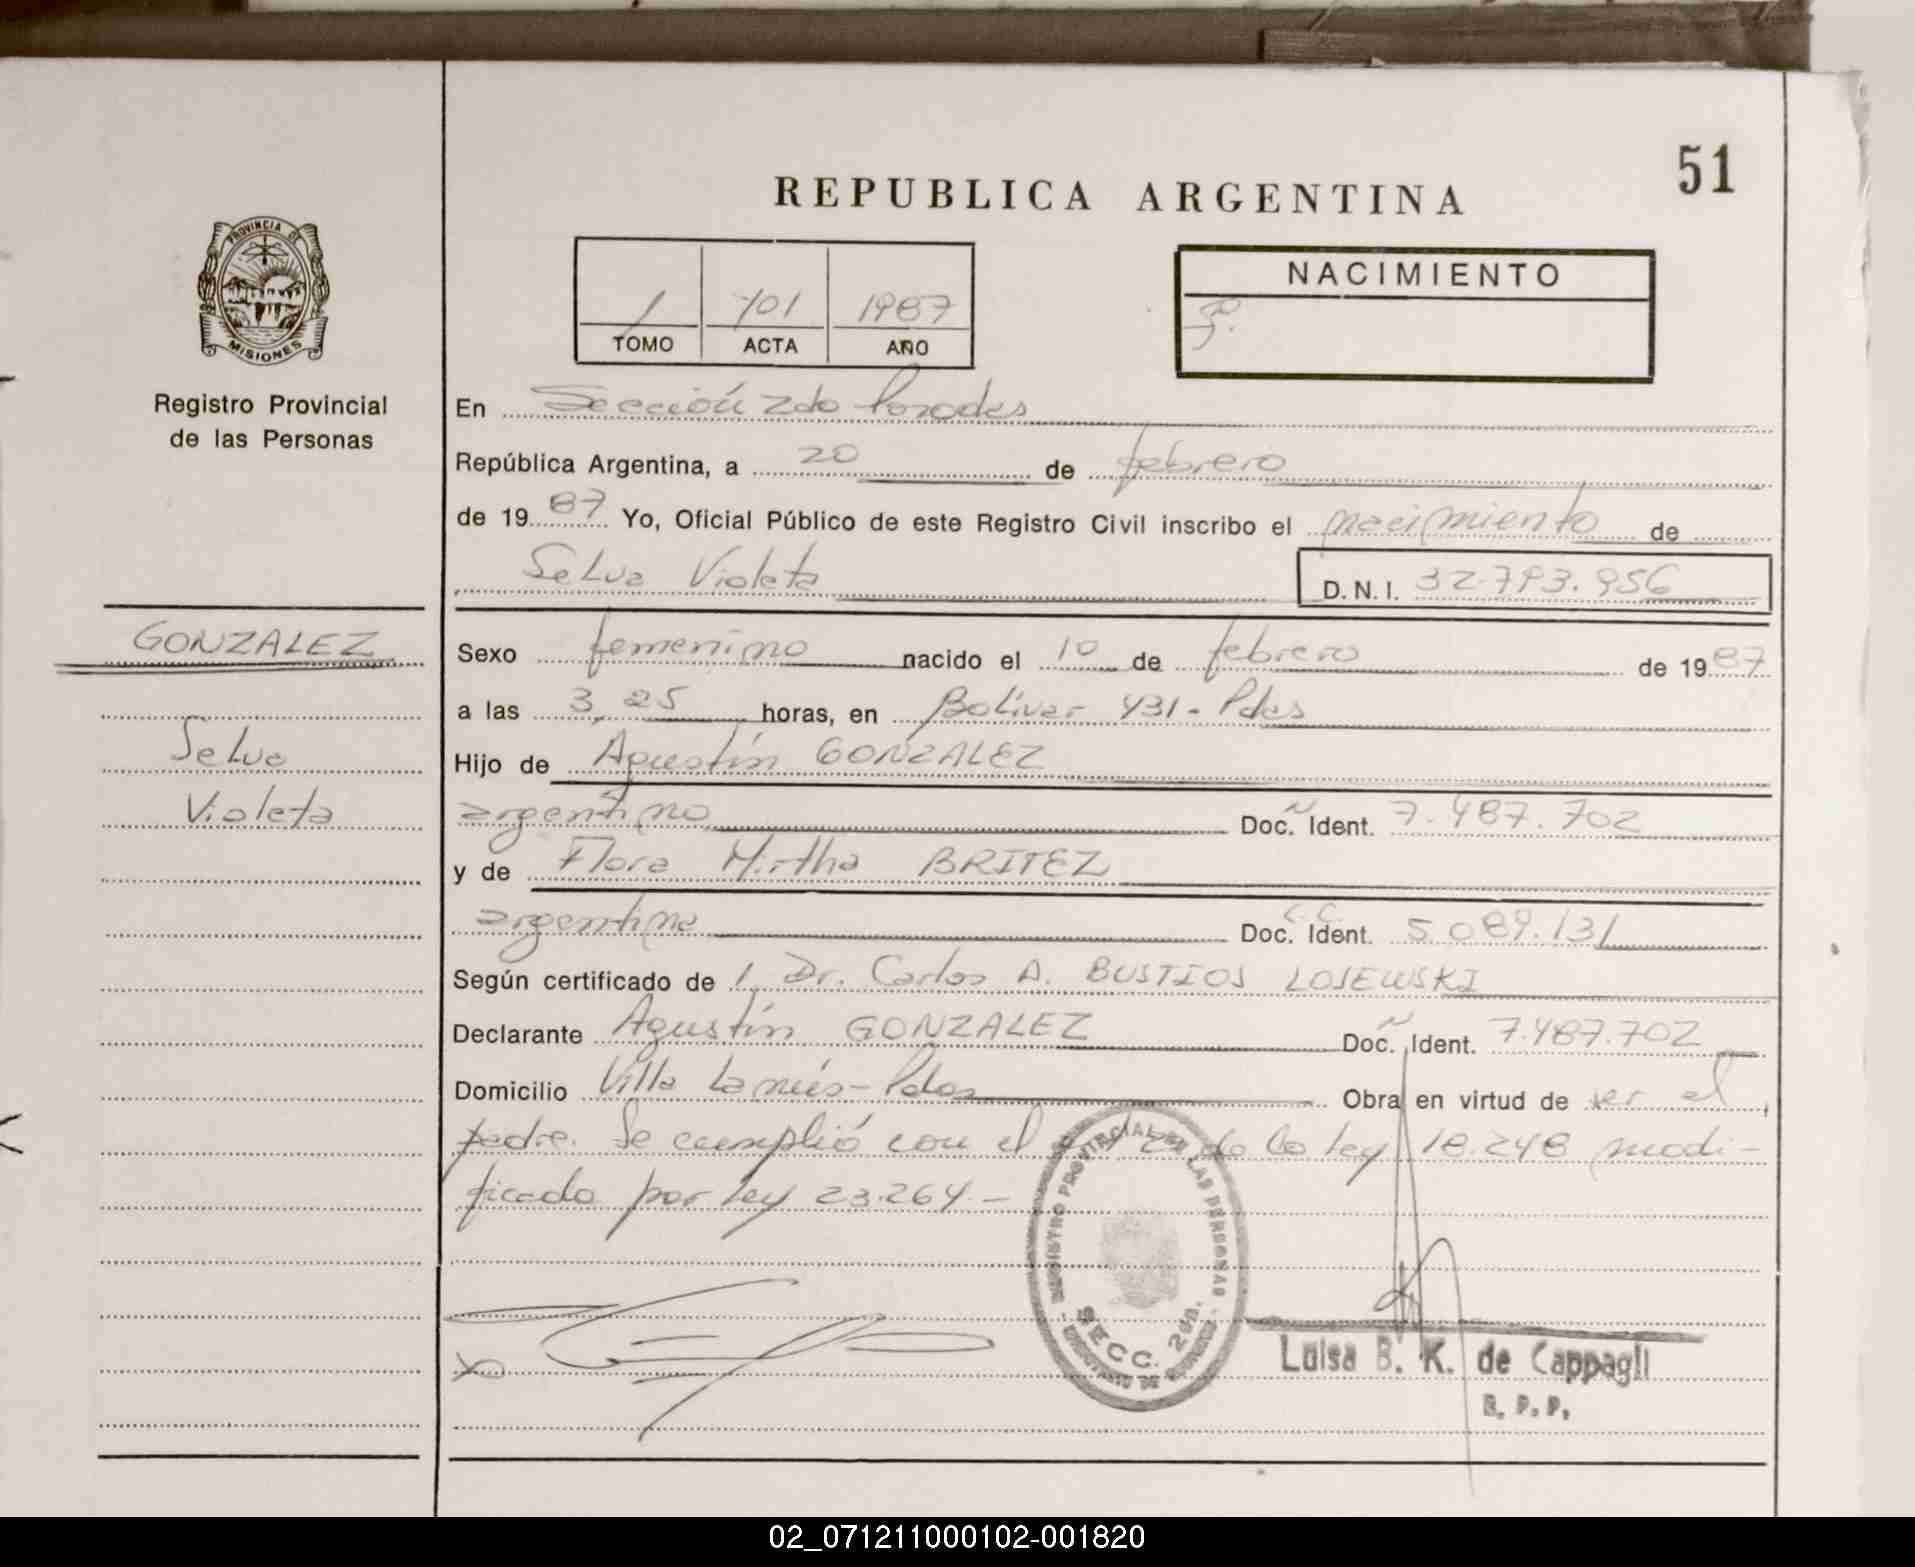 51
REPUBLICA ARGENTINA
PROVINCIA DE
MISIONES
Registro Provincial
de las Personas
1 101 1987
TOMO ACTA AÑO
NACIMIENTO
En Sección 2da Posadas
República Argentina, a 20 de febrero
de 1987 Yo, Oficial Público de este Registro Civil inscribo el nacimiento de
Selva Violeta D.N.I. 32.793.956
GONZALEZ
Selva
Violeta
Sexo femenino nacido el 10 de febrero de 1987
a las 3,25 horas, en Bolívar 431 - Pdas
Hijo de Agustín GONZALEZ
argentino Doc. Ident. 7.487.702
y de Flora Mirtha BRITEZ
argentina C.C. Doc. Ident. 5.089.131
Según certificado de Dr. Carlos A. BUSTIOS LOSEWSKI
Declarante Agustín GONZALEZ Doc. Ident. 7.487.702
Domicilio Villa Lanús - Pdas Obra en virtud de ser el
padre. Se cumplió con el de la ley 18.248 modi-
ficado por ley 23.264.-
REGISTRO PROVINCIAL DE LAS PERSONAS
SECC. 2da.
Luisa B. K. de Cappagli
R. P. P.
02_071211000102-001820